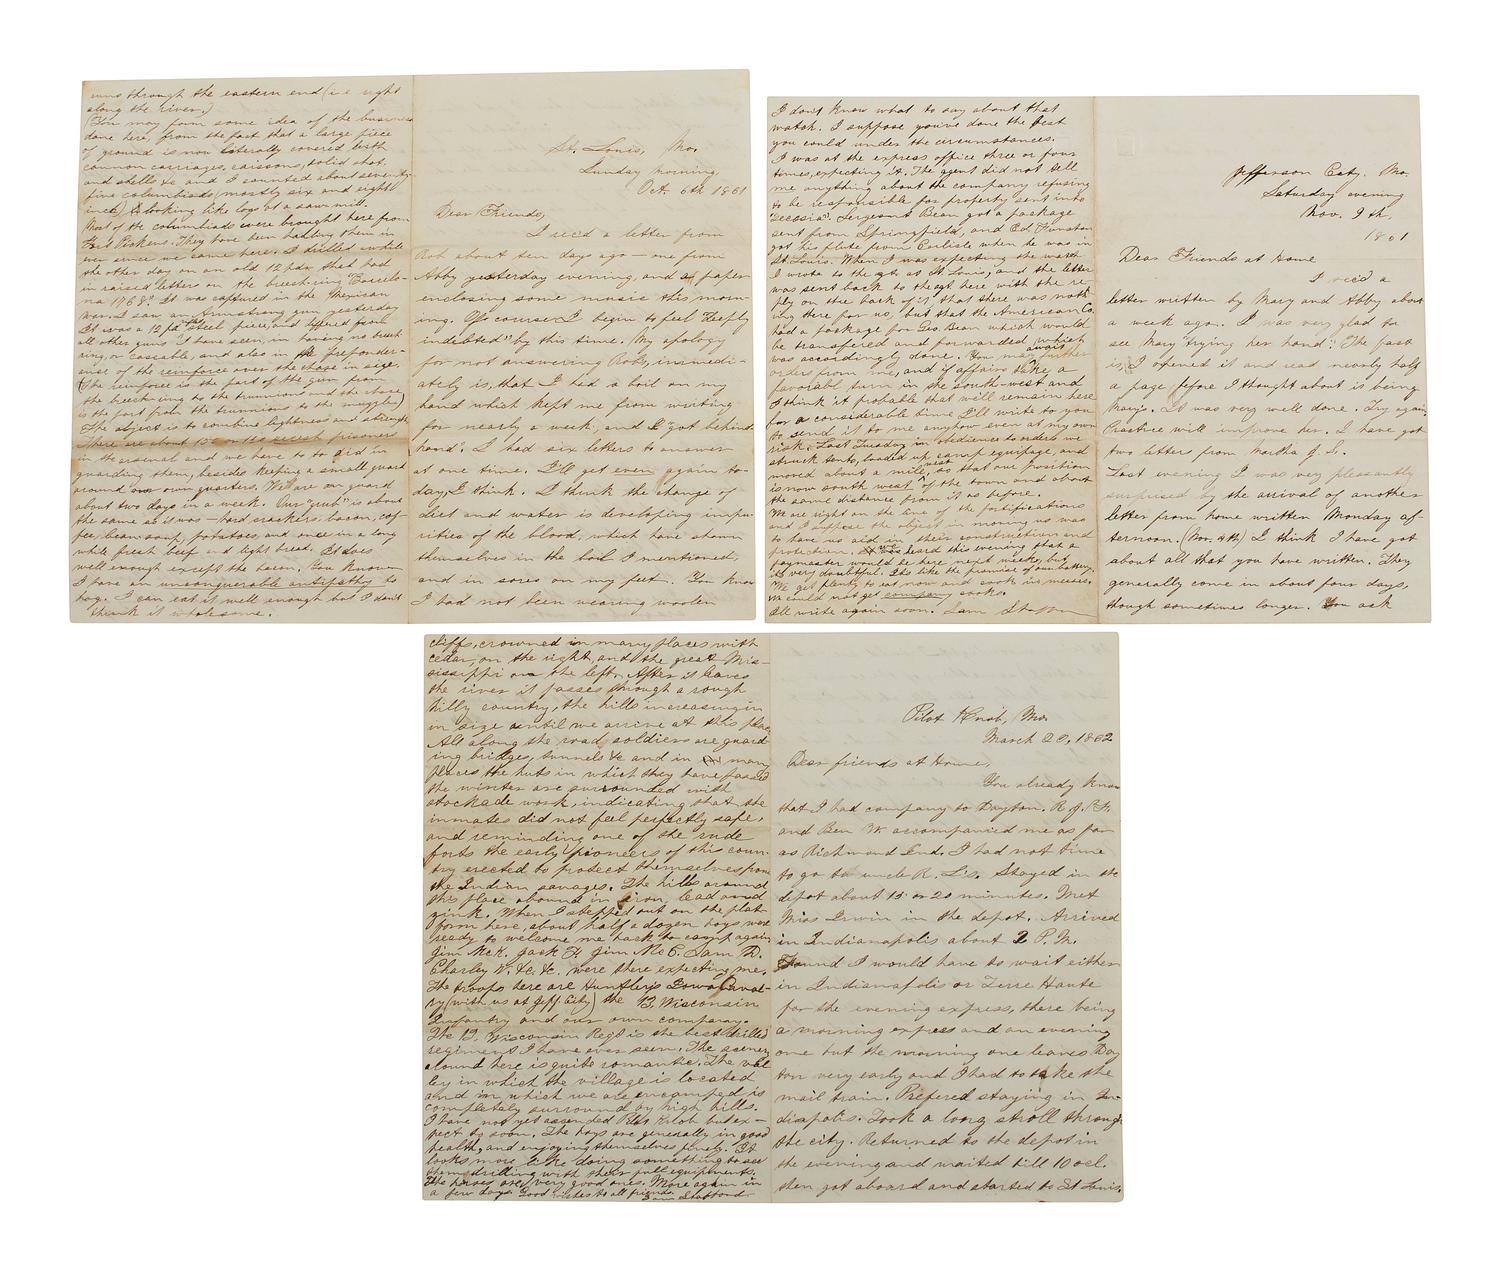 runs through the eastern end (i.e. right
along the river.)
(You may form some idea of the business
done here, from the fact that a large piece
of ground is now literally covered with
common carriages, caissons, solid shot
and shells &c and I counted about seventy-
five columbiads (mostly six and eight
inch) looking like logs at a saw mill.
Most of the columbiads were brought here from
Fort Pickens. They have been hauling them in
ever since we came here. I drilled awhile
the other day on an old 12 pdr that had
in raised letters on the breech-ring "Barcelo-
na 1768." It was captured in the Mexican
war. I saw an Armstrong gun yesterday
It was a 12 pdr steel piece, and differed from
all other guns I have seen, in having no breech
ring, or cascable, and also in the preponder-
ance of the reinforce over the chase in size.
(The reinforce is the part of the gun from
the breech-ring to the trunnions and the chase
is the part from the trunnions to the muzzle)
The object is to combine lightness and strength
There are about 150 or 160 secesh prisoners
in the arsenal and we have to aid in
guarding them, besides keeping a small guard
around our own quarters. We are on guard
about two days in a week. Our "grub" is about
the same as it was — hard crackers, bacon, cof-
fee, bean soup, potatoes, and once in a long
while fresh beef and light bread. It does
well enough except the bacon. You know
I have an unconquerable antipathy to
hog. I can eat it well enough but I don't
think it wholesome.
St. Louis, Mo.
Sunday morning,
Oct. 6th 1861
Dear Friends,
I rec'd a letter from
Rob about ten days ago — one from
Abby yesterday evening, and a paper
enclosing some music this morn-
ing. Of course I begin to feel "deeply
indebted" by this time. My apology
for not answering Rob's, immedi-
ately is, that I had a boil on my
hand which kept me from writing
for nearly a week, and I "got behind
hand". I had six letters to answer
at one time. I'll get even again to-
day, I think. I think the change of
diet and water is developing impu-
rities of the blood, which have shown
themselves in the boil I mentioned,
and in sores on my feet. You know
I had not been wearing woolen
I don't know what to say about that
watch. I suppose you've done the best
you could under the circumstances.
I was at the express office three or four
times, expecting it. The agent did not tell
me anything about the company refusing
to be responsible for property sent into
"secesia". Sergeant Bean got a package
sent from Springfield, and Ed Funston
got his flute from Carlisle when he was in
St. Louis. When I was expecting the watch
I wrote to the agt at St Louis, and the letter
was sent back to the agt here with the re-
ply on the back of it that there was noth-
ing there for us, but that the American Co.
had a package for Geo. Bean which would
be transfered and forwarded, which
was accordingly done. You may await further
orders from me, and if affairs take a
favorable turn in the south-west and
I think it probable that we'll remain here
for a considerable time I'll write to you
to send it to me anyhow even at my own
risk. Last Tuesday in obedience to orders we
struck tents, loaded up camp equipage, and
moved about a mile, west so that our position
is now south west of the town and about
the same distance from it as before.
We are right on the line of the fortifications
and I suppose the object in moving us was
to have us aid in their construction and
protection. heard this evening that a
paymaster would be here next week, but
it's very doubtful. It's like the promise of our battery.
We get plenty to eat now and cook in messes.
We could not get company cooks.
I'll write again soon. I am Stafford
Jefferson City. Mo.
Saturday evening
Nov. 9th,
1861
Dear Friends at Home
I rec'd a
letter written by Mary and Abby about
a week ago. I was very glad to
see Mary "trying her hand". The fact
is, I opened it and read nearly half
a page before I thought about is being
Mary's. It was very well done. Try again
Practice will improve her. I have got
two letters from Martha J. S.
Last evening I was very pleasantly
surprised by the arrival of another
letter from home written Monday af-
ternoon. (Nov. 4th) I think I have got
about all that you have written. They
generally come in about four days,
though sometimes longer. You ask
cliffs, crowned in many places with
cedar, on the right, and the great Mis-
sissippi on the left. After it leaves
the river it passes through a rough
hilly country, the hills increasing in
in size until we arrive at this place
All along the road soldiers are guard-
ing bridges, tunnels &c and in many
places the huts in which they have passed
the winter are surrounded with
stockade work, indicating that the
inmates did not feel perfectly safe,
and reminding one of the rude
forts the early pioneers of this coun-
try erected to protect themselves from
the Indian savages. The hills around
this place abound in iron, lead and
zink. When I stepped out on the plat-
form here, about half a dozen boys were
ready to welcome me back to camp again
Jim McK. Jack H. Jim McC. Sam D.
Charley W. &c. &c. were there expecting me.
The troops here are Huntley's Iowa Caval-
ry (with us at Jeff City) the 12 Wisconsin
Infantry and our own company.
The 12. Wisconsin Reg't is the best drilled
regiment I have ever seen. The scenery
around here is quite romantic. The val-
ley in which the village is located
and in which we are encamped is
completely surround by high hills.
I have not yet ascended Pilot Knob but ex-
pect to soon. The boys are generally in good
health, and enjoying themselves finely. It
looks more like doing something to see
them drilling with their full equipments.
The horses are very good ones. More again in
a few days. Good wishes to all friends. I am Stafford
Pilot Knob, Mo.
March 20, 1862
Dear friends at Home,
You already know
that I had company to Dayton. R. J. F.
and Ben W. accompanied me as far
as Richmond Ind. I had not time
to go to uncle R. L's. Stayed in the
depot about 15 or 20 minutes. Met
Miss Irwin in the depot. Arrived
in Indianapolis about 2 P.M.
Found I would have to wait either
in Indianapolis or Terre Haute
for the evening express, there being
a morning express and an evening
one but the morning one leaves Day
ton very early and I had to take the
mail train. Prefered staying in In-
diapolis. Took a long stroll through
the city. Returned to the depot in
the evening and waited till 10 ocl.
then got aboard and started to St Louis.